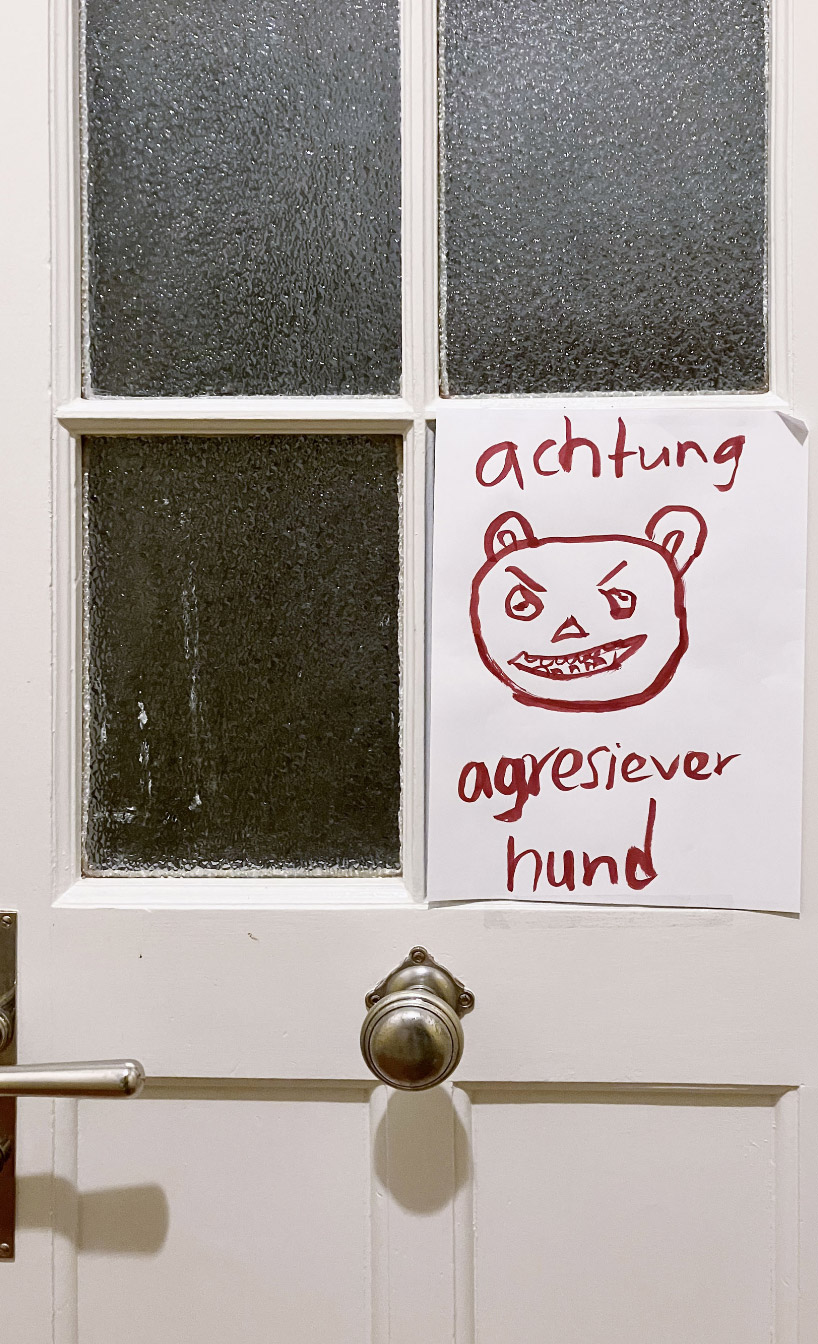 achtung
agresiever
hund